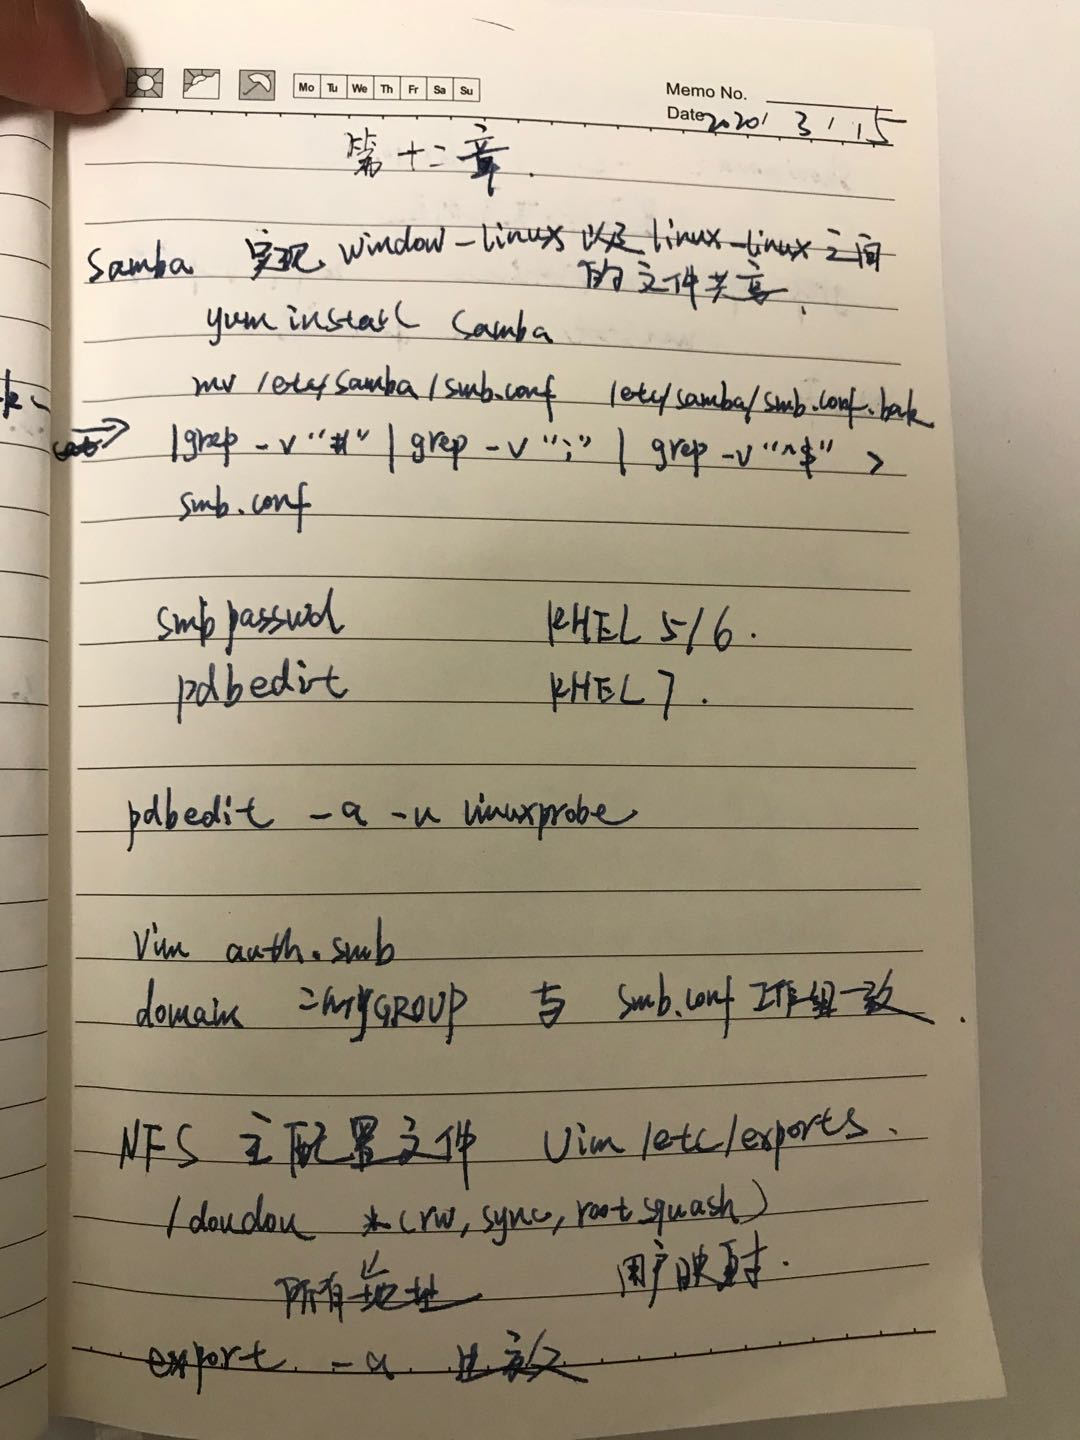 Mo Tu We Th Fr Sa Su
Memo No.
Date 2020 / 3 / 15
第十二章.
Samba 实现 window-linux 以及 linux-linux 之间
的文件共享.
yum install samba
mv /etc/samba/smb.conf /etc/samba/smb.conf.bak
cat
|grep -v "#" | grep -v ";" | grep -v "^$" >
smb.conf
smbpasswd RHEL 5/6.
pdbedit RHEL 7.
pdbedit -a -u linuxprobe
Vim auth.smb
domain =MYGROUP 与 smb.conf 工作组一致.
NFS 主配置文件 Vim /etc/exports.
/doudou *(rw,sync,root_squash)
所有地址 用户映射.
export -a